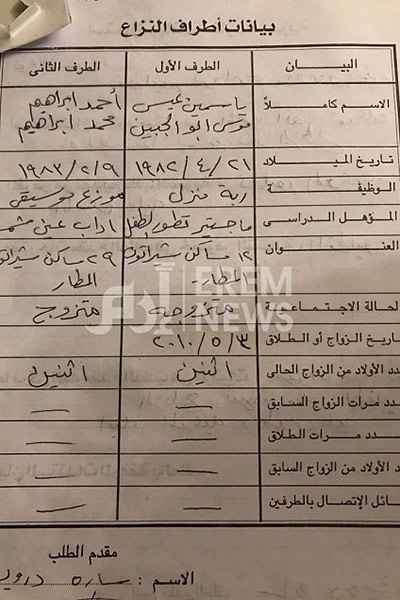 بيانات أطراف النزاع
البيان الطرف الأول الطرف الثانى
الاسم كاملاً ياسمين عيسى أحمد ابراهيم
موسى ابو الجبين محمد ابراهيم
تاريخ الميلاد ١٩٨٢/٤/٢١ ١٩٨٣/٢/٩
الوظيفة ربة منزل موزع موسيقى
المؤهل الدراسى ماجستير تطور لطفل اداب عين
العنوان ١٢ مساكن شيراتون ٢٩ مساكن شيراتو
المطار المطار
لحالة الاجتماعية متزوجه متزوج
FILEM
NEWS
اريخ الزواج أو الطلاق ٢٠١٠/٥/٣
دد الأولاد من الزواج الحالى اثنين اثنين
دد مرات الزواج السابق — —
دد مرات الطلاق — —
دد الأولاد من الزواج السابق — —
سائل الإتصال بالطرفين — —
مقدم الطلب
الاسم : ساره درويـ